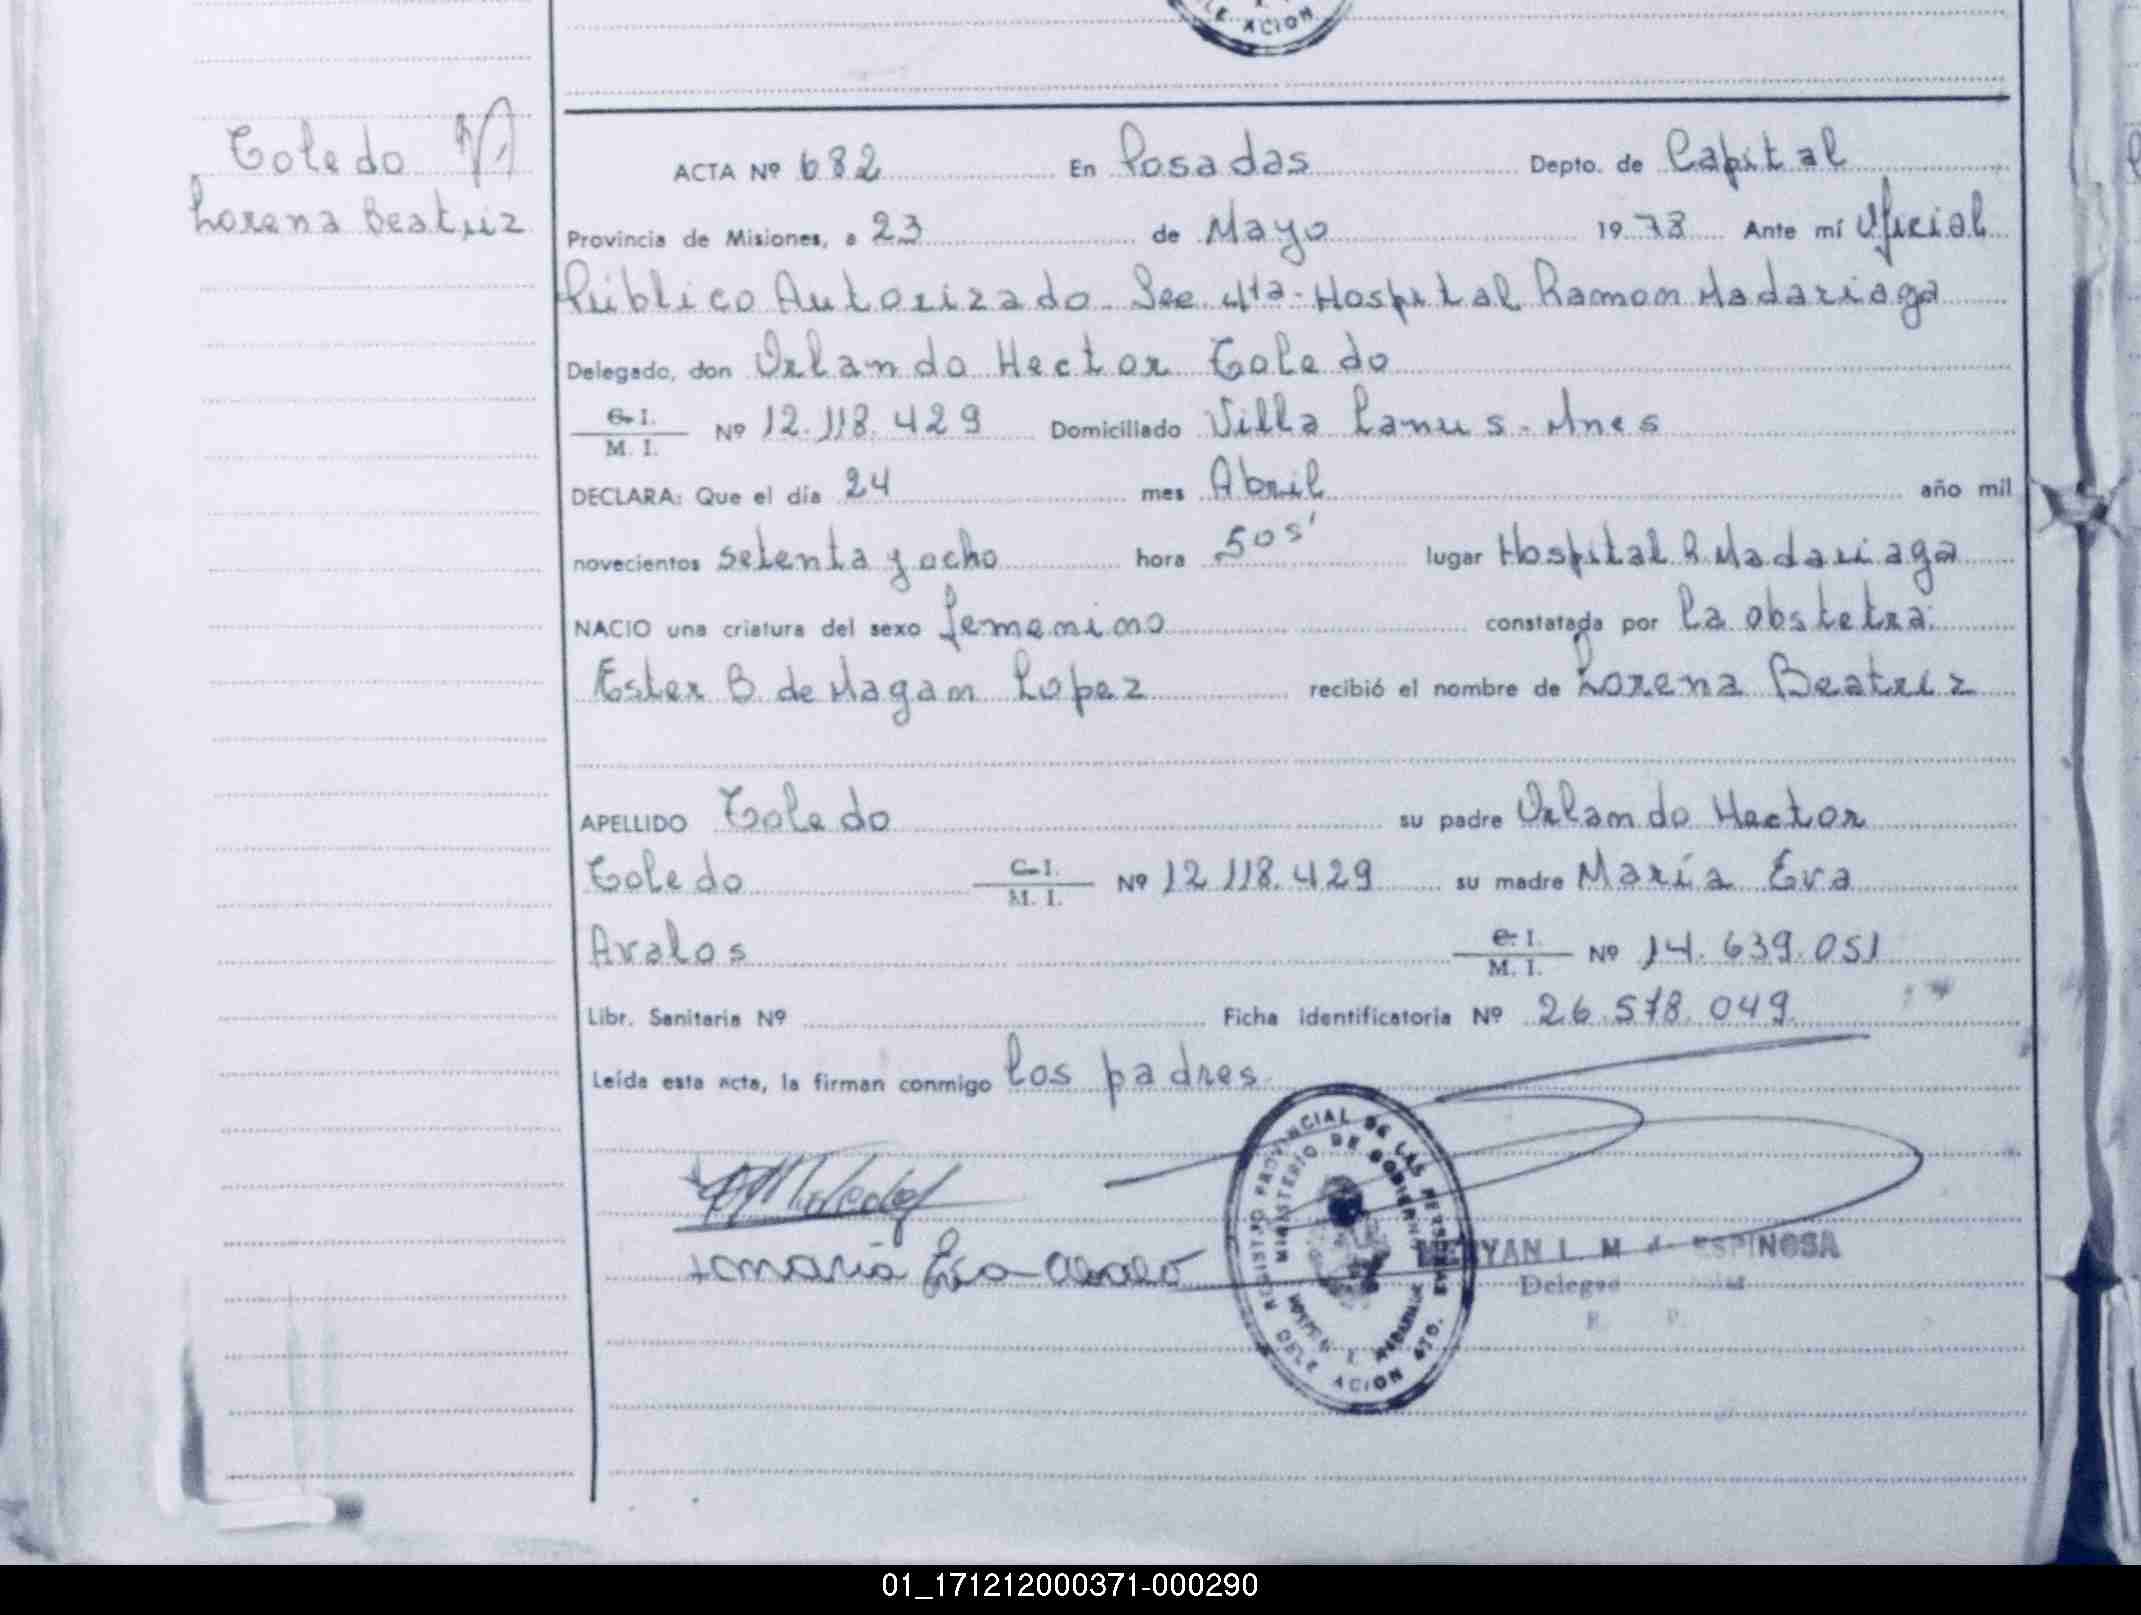 ACION
Toledo
Lorena Beatriz
ACTA Nº 682 En Posadas Depto. de Capital
Provincia de Misiones, a 23 de Mayo 1978 Ante mí Oficial
Público Autorizado Sec 4ta- Hospital Ramon Madariaga
Delegado, don Orlando Hector Toledo
C. I.
M. I. Nº 12.118.429 Domiciliado Villa Lanus - Mnes
DECLARA: Que el día 24 mes Abril año mil
novecientos setenta y ocho hora 5 05' lugar Hospital R Madariaga
NACIO una criatura del sexo femenino constatada por la obstetra:
Ester B. de Magam Lopez recibió el nombre de Lorena Beatriz
APELLIDO Toledo su padre Orlando Hector
Toledo C. I.
M. I. Nº 12.118.429 su madre María Eva
Avalos C. I.
M. I. Nº 14.639.051
Libr. Sanitaria Nº Ficha identificatoria Nº 26.578.049
Leída esta acta, la firman conmigo los padres
Maria Eva
REGISTRO PROVINCIAL DE LAS PERSONAS
MINISTERIO DE GOBIERNO
L. M. d. ESPINOSA
DELE ACION 4TO.
01_171212000371-000290